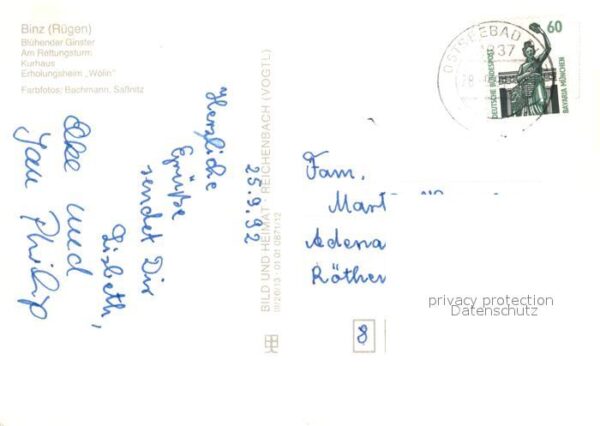 Binz (Rügen)
Blühender Ginster
Am Rettungsturm
Kurhaus
Erholungsheim „Wolin"
Farbfotos: Bachmann, Saßnitz
25.9.92
Herzliche
Grüße
sendet Dir
Lisbeth,
und
Jan Philip
BILD UND HEIMAT · REICHENBACH (VOGTL)
III/26/13 · 01 01 0871/12
OSTSEEBAD
60
DEUTSCHE BUNDESPOST
BAVARIA MÜNCHEN
Fam.
Mart
Adena
Röther
8
privacy protection
Datenschutz